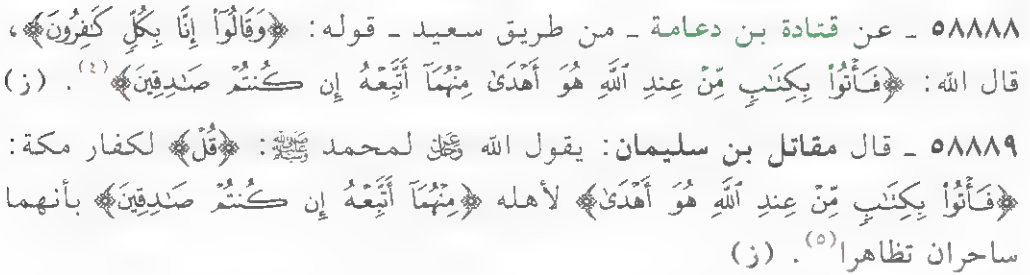 ٥٨٨٨٨ ـ عن قتادة بن دعامة ـ من طريق سعيد ـ قوله: ﴿وَقَالُوٓاْ إِنَّا بِكُلّٖ كَٰفِرُونَ﴾،
قال الله: ﴿فَأۡتُواْ بِكِتَٰبٖ مِّنۡ عِندِ ٱللَّهِ هُوَ أَهۡدَىٰ مِنۡهُمَآ أَتَّبِعۡهُ إِن كُنتُمۡ صَٰدِقِينَ﴾(٤). (ز)
٥٨٨٨٩ ـ قال مقاتل بن سليمان: يقول الله ﷿ لمحمد ﷺ: ﴿قُلۡ﴾ لكفار مكة:
﴿فَأۡتُواْ بِكِتَٰبٖ مِّنۡ عِندِ ٱللَّهِ هُوَ أَهۡدَىٰ﴾ لأهله ﴿مِنۡهُمَآ أَتَّبِعۡهُ إِن كُنتُمۡ صَٰدِقِينَ﴾ بأنهما
ساحران تظاهرا(٥). (ز)